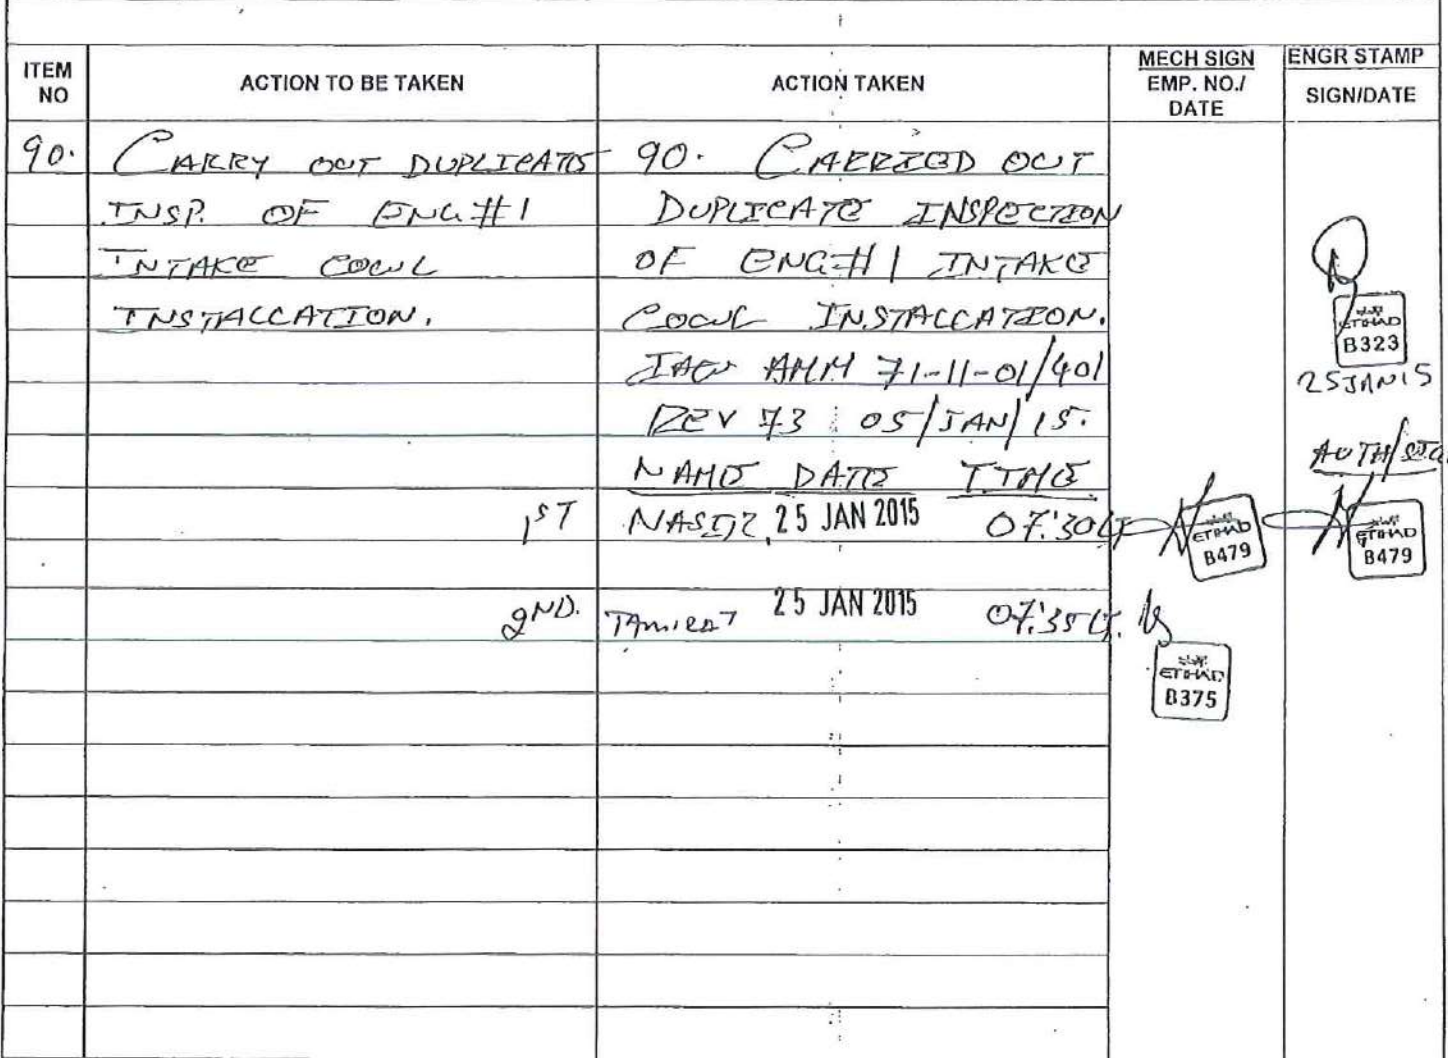 ITEM NO
ACTION TO BE TAKEN
ACTION TAKEN
MECH SIGN
EMP. NO./
DATE
ENGR STAMP
SIGN/DATE
90. CARRY OUT DUPLICATE
INSP. OF ENG #1
INTAKE COWL
INSTALLATION.
90. CARRIED OUT
DUPLICATE INSPECTION
OF ENG #1 INTAKE
COWL INSTALLATION.
IAW AMM 71-11-01/401
REV 73 05/JAN/15.
NAME DATE TIME
1ST NASIR, 25 JAN 2015 07:30LT
2ND. TAMIRAT 25 JAN 2015 07:35LT.
ETIHAD
B323
25JAN15
AUTH/
ETIHAD
B479
ETIHAD
B479
ETIHAD
B375